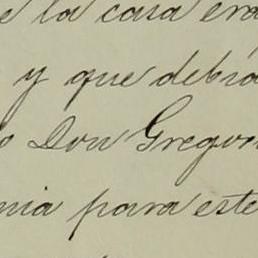 e la casa era
y que debía
o Don Gregor
nia para este